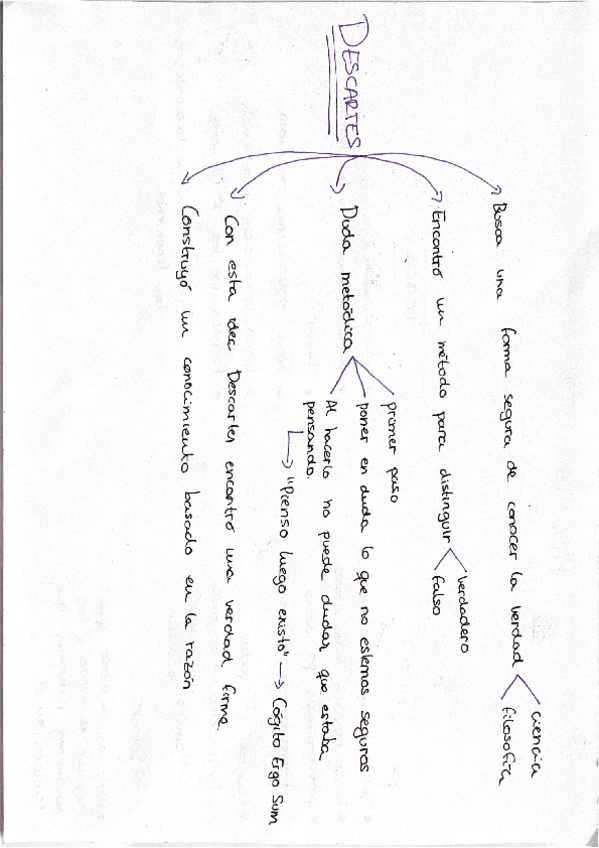 DESCARTES
Busca una forma segura de conocer la verdad
ciencia
filosofía
Encontró un método para distinguir
verdadero
falso
Duda metódica
primer paso
poner en duda lo que no estemos seguros
Al hacerlo no puede dudar que estaba
pensando.
"Pienso luego existo" → Cógito Ergo Sum
Con esta idea Descartes encontró una verdad firme.
Construyó un conocimiento basado en la razón